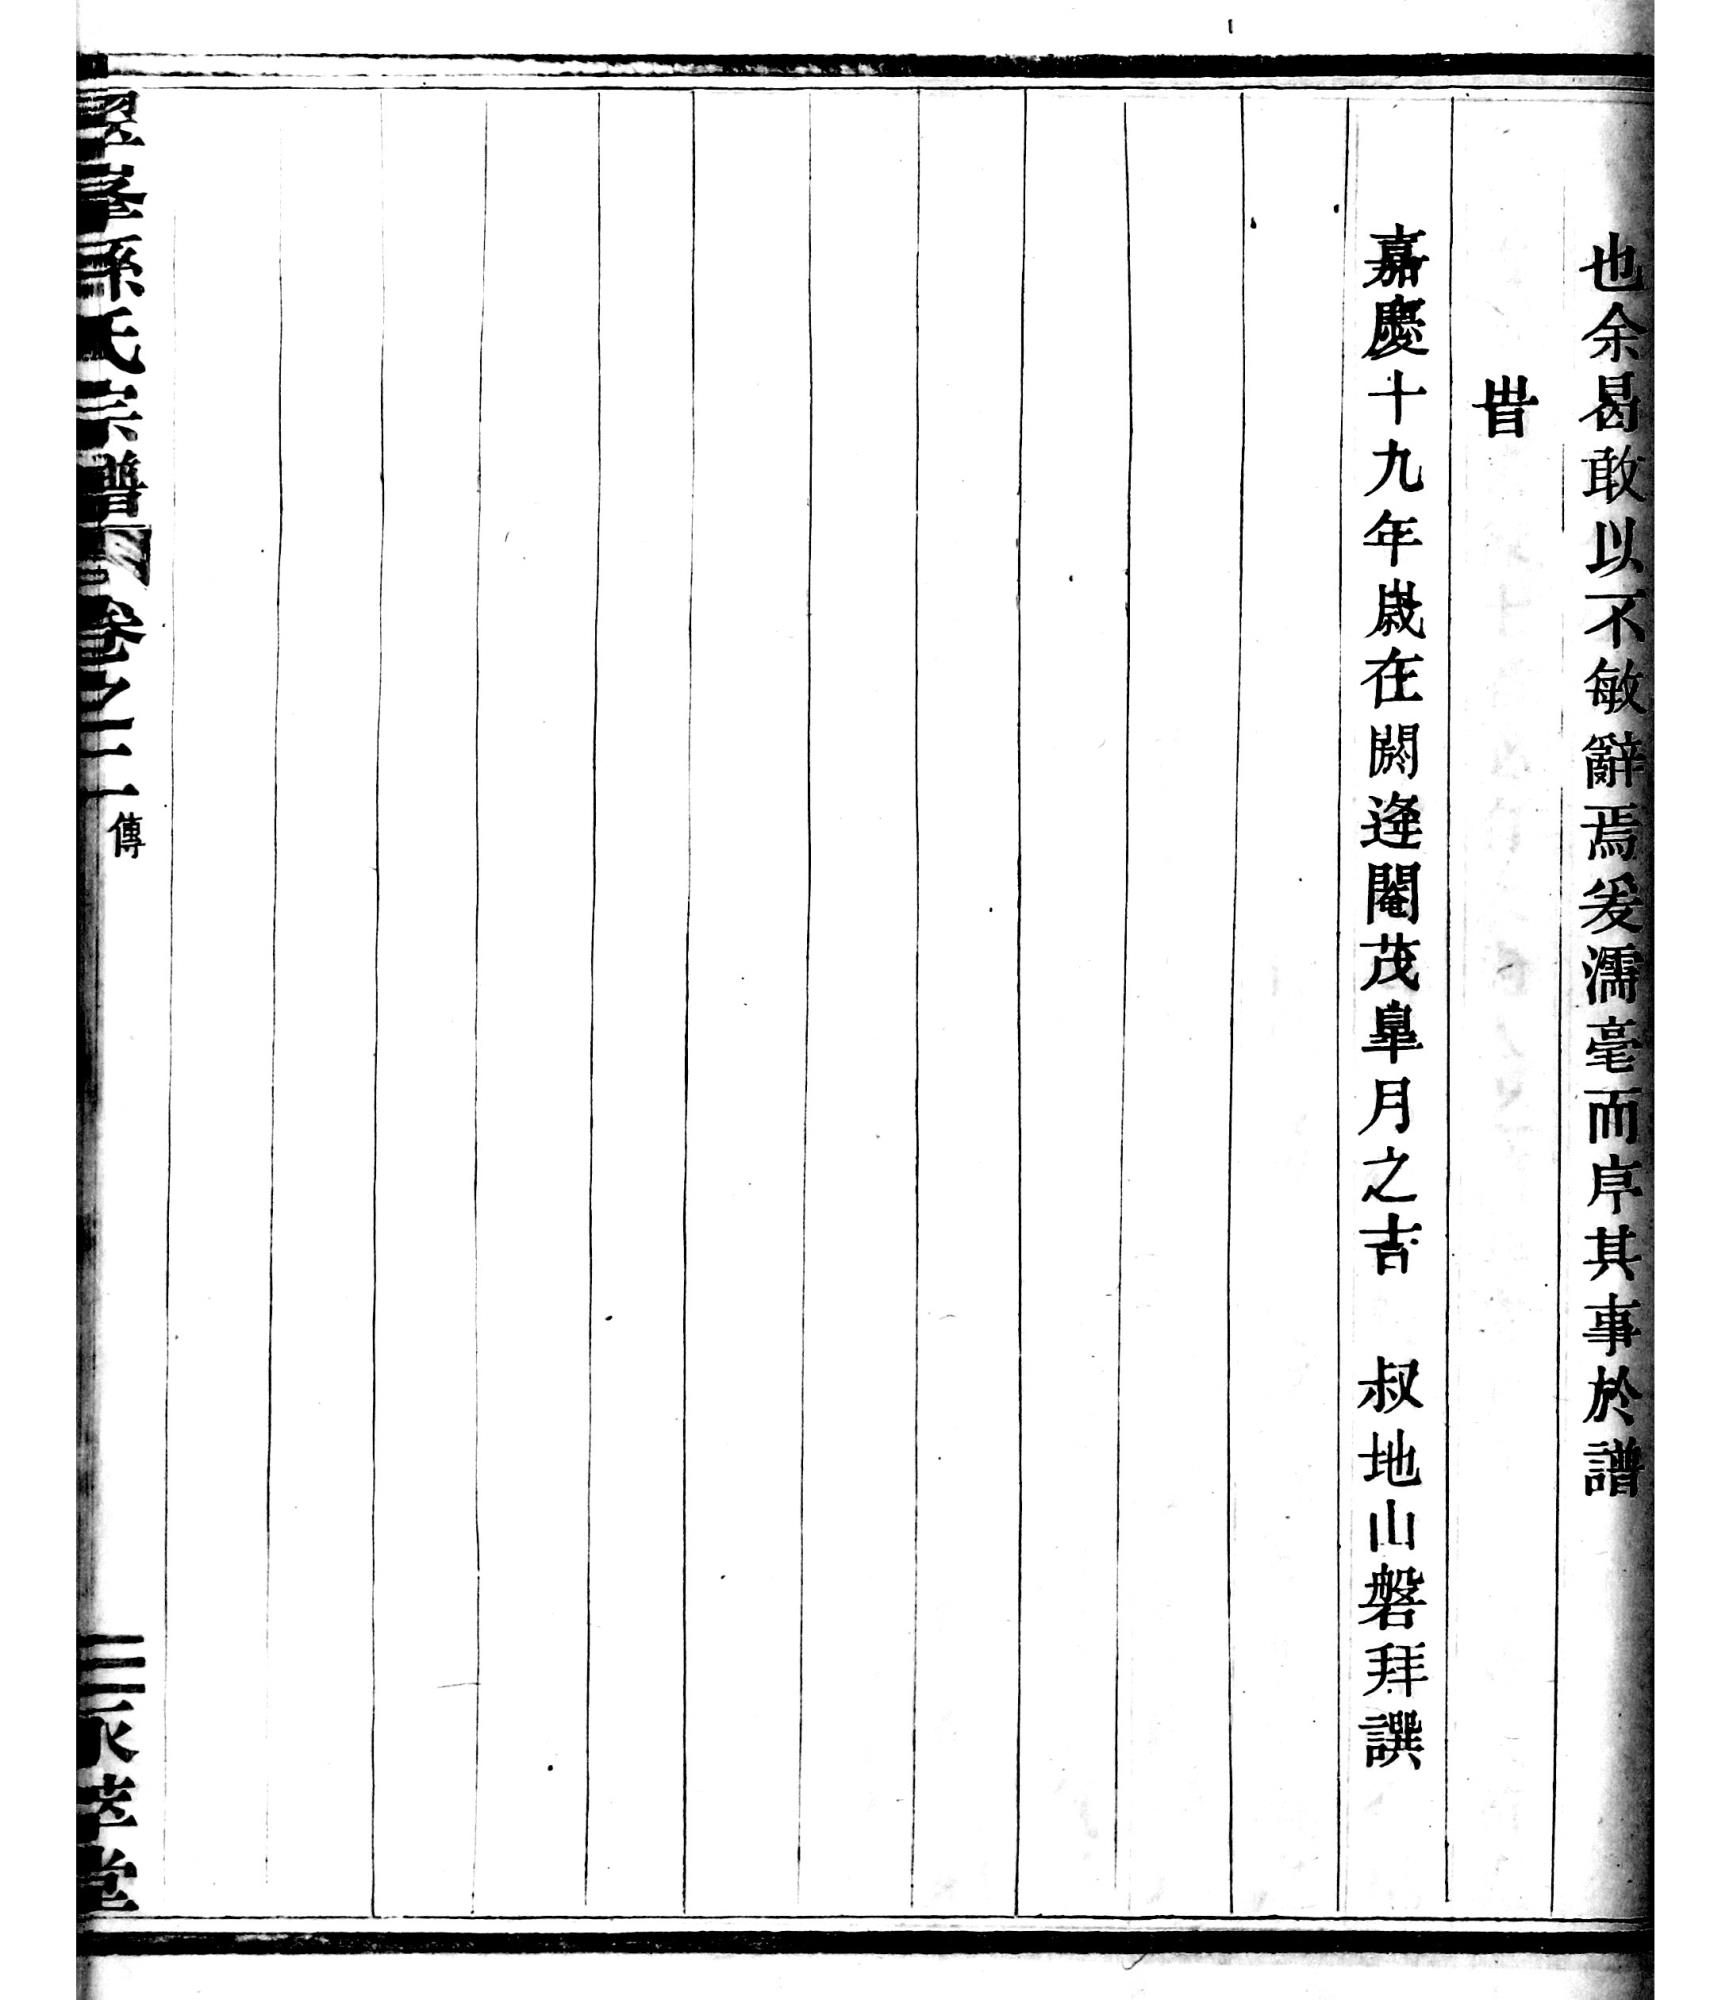 也余曷敢以不敏辭焉爰濡毫而序其事於譜
旹
嘉慶十九年歲在閼逢閹茂臯月之吉　叔地山磐拜譔
孫氏宗譜 卷之二 傳
三 永萃堂